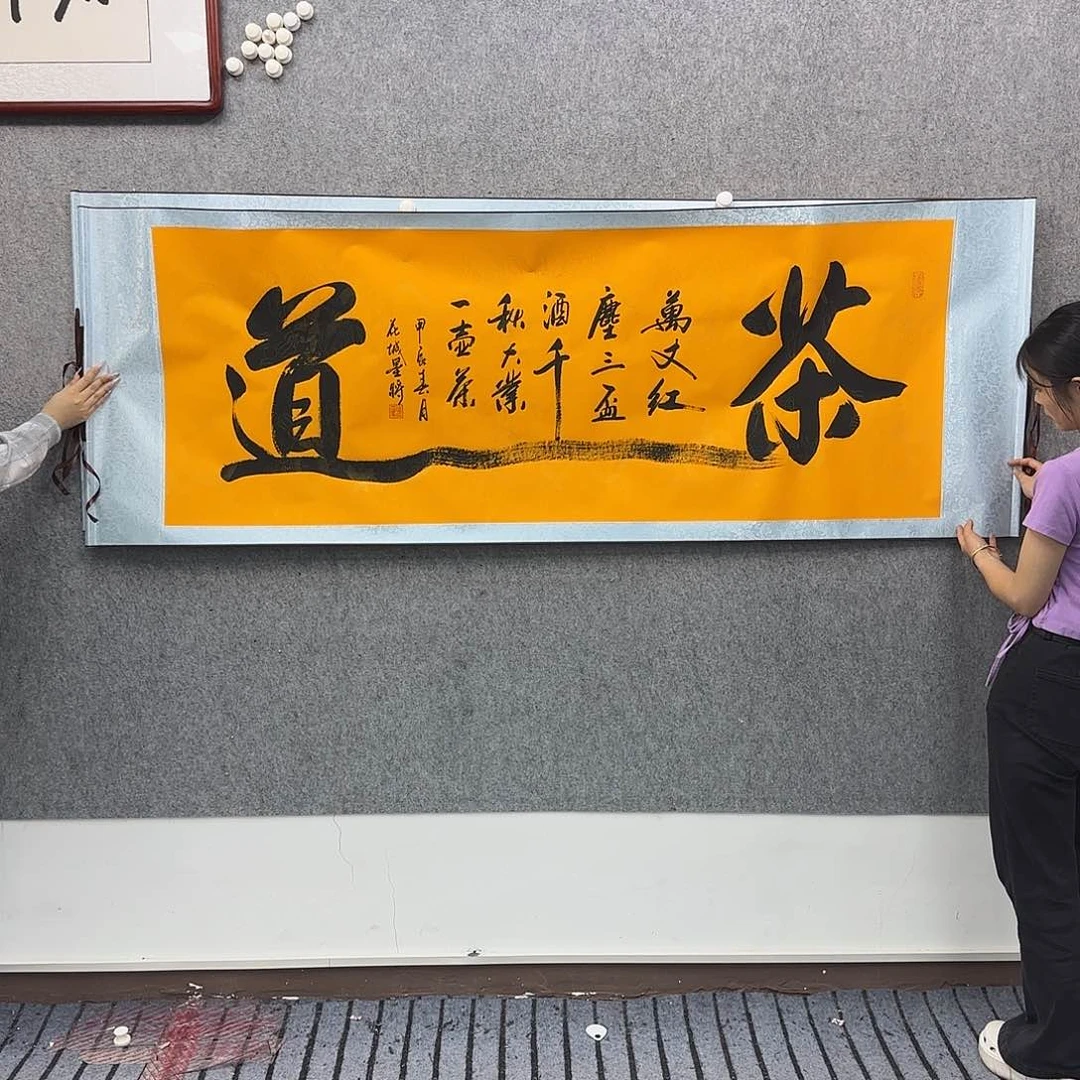 茶道
萬丈紅
塵三盃
酒千
秋大業
一壺茶
甲辰春月
花城墨將